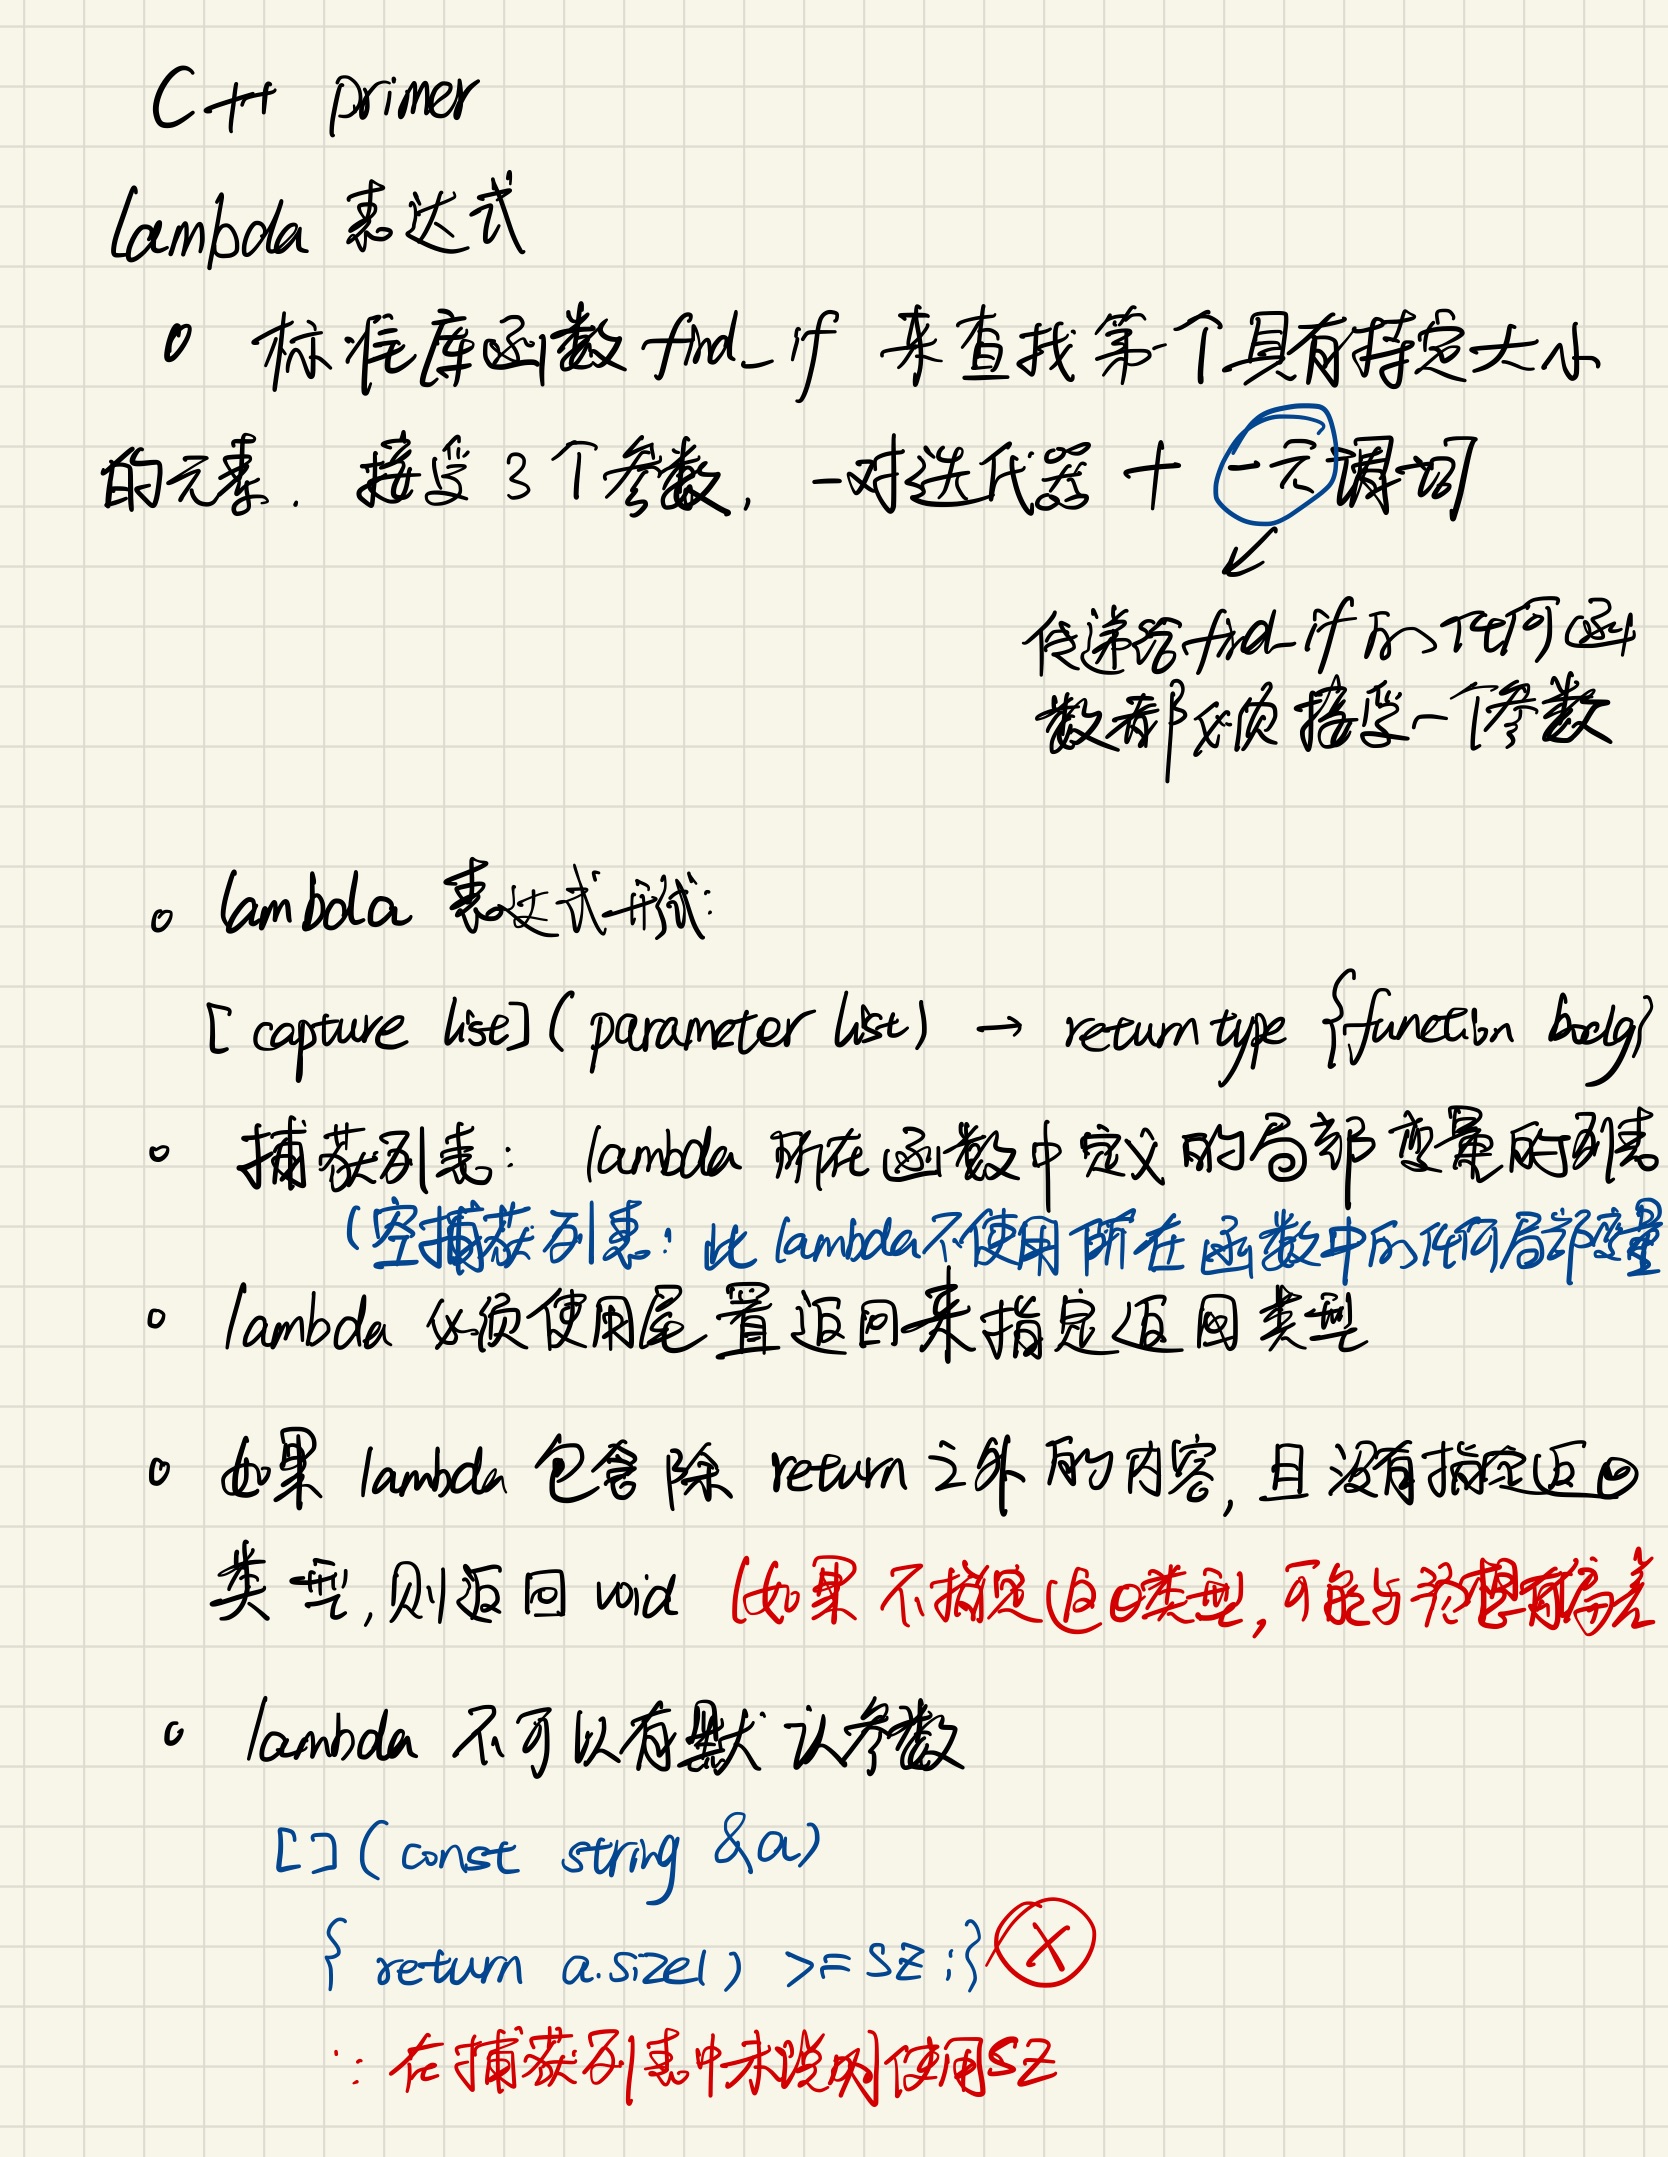 C++ primer
lambda 表达式
。 标准库函数 find_if 来查找第一个具有特定大小
的元素. 接受3个参数, 一对迭代器 + 一元谓词
↙
传递给find_if的任何函
数都必须接受一个参数
。 lambda 表达式形式:
[capture list](parameter list) → return type {function body}
。 捕获列表: lambda 所在函数中定义的局部变量的列表
(空捕获列表: 此lambda不使用所在函数中的任何局部变量
。 lambda 必须使用尾置返回来指定返回类型
。 如果 lambda 包含除 return 之外的内容, 且没有指定返回
类型,则返回 void (如果不指定返回类型,可能与预想有偏差
。 lambda 不可以有默认参数
[](const string &a)
{ return a.size() >= sz ;} X
∵ 在捕获列表中未说明使用sz